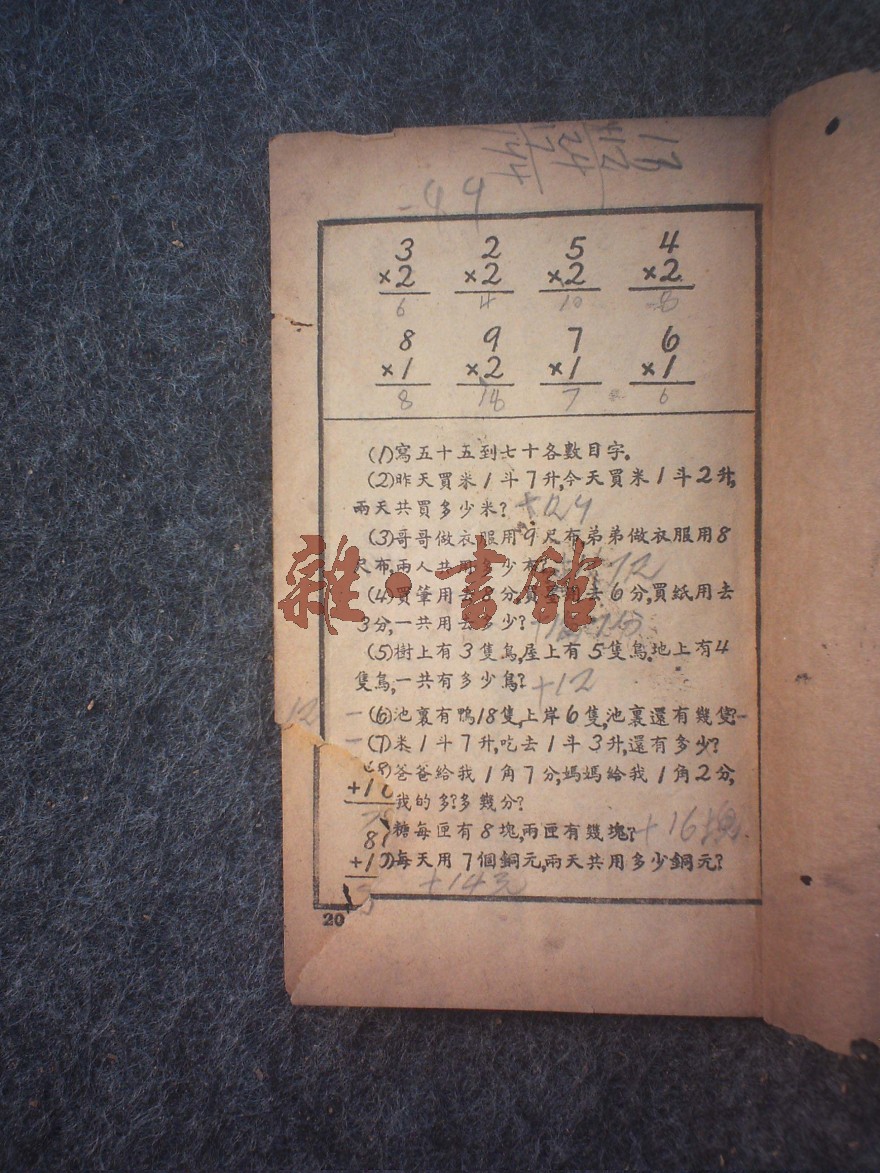 -99
3 2 5 4
×2 ×2 ×2 ×2
6 4 10 8
8 9 7 6
×1 ×2 ×1 ×1
8 18 7 6
(1)寫五十五到七十各數目字。
(2)昨天買米1斗7升,今天買米1斗2升,
兩天共買多少米?
(3)哥哥做衣服用9尺布,弟弟做衣服用8
尺布,兩人共用多少布?
(4)買筆用去8分,買墨用去6分,買紙用去
3分,一共用去多少?
(5)樹上有3隻鳥,屋上有5隻鳥,地上有4
隻鳥,一共有多少鳥? +12
12
(6)池裏有鴨18隻,上岸6隻,池裏還有幾隻?
(7)米1斗7升,吃去1斗3升,還有多少?
爸爸給我1角7分,媽媽給我1角2分,
我的多?多幾分?
糖每匣有8塊,兩匣有幾塊? +16塊
每天用7個銅元,兩天共用多少銅元?
+14元
20
雜·書館